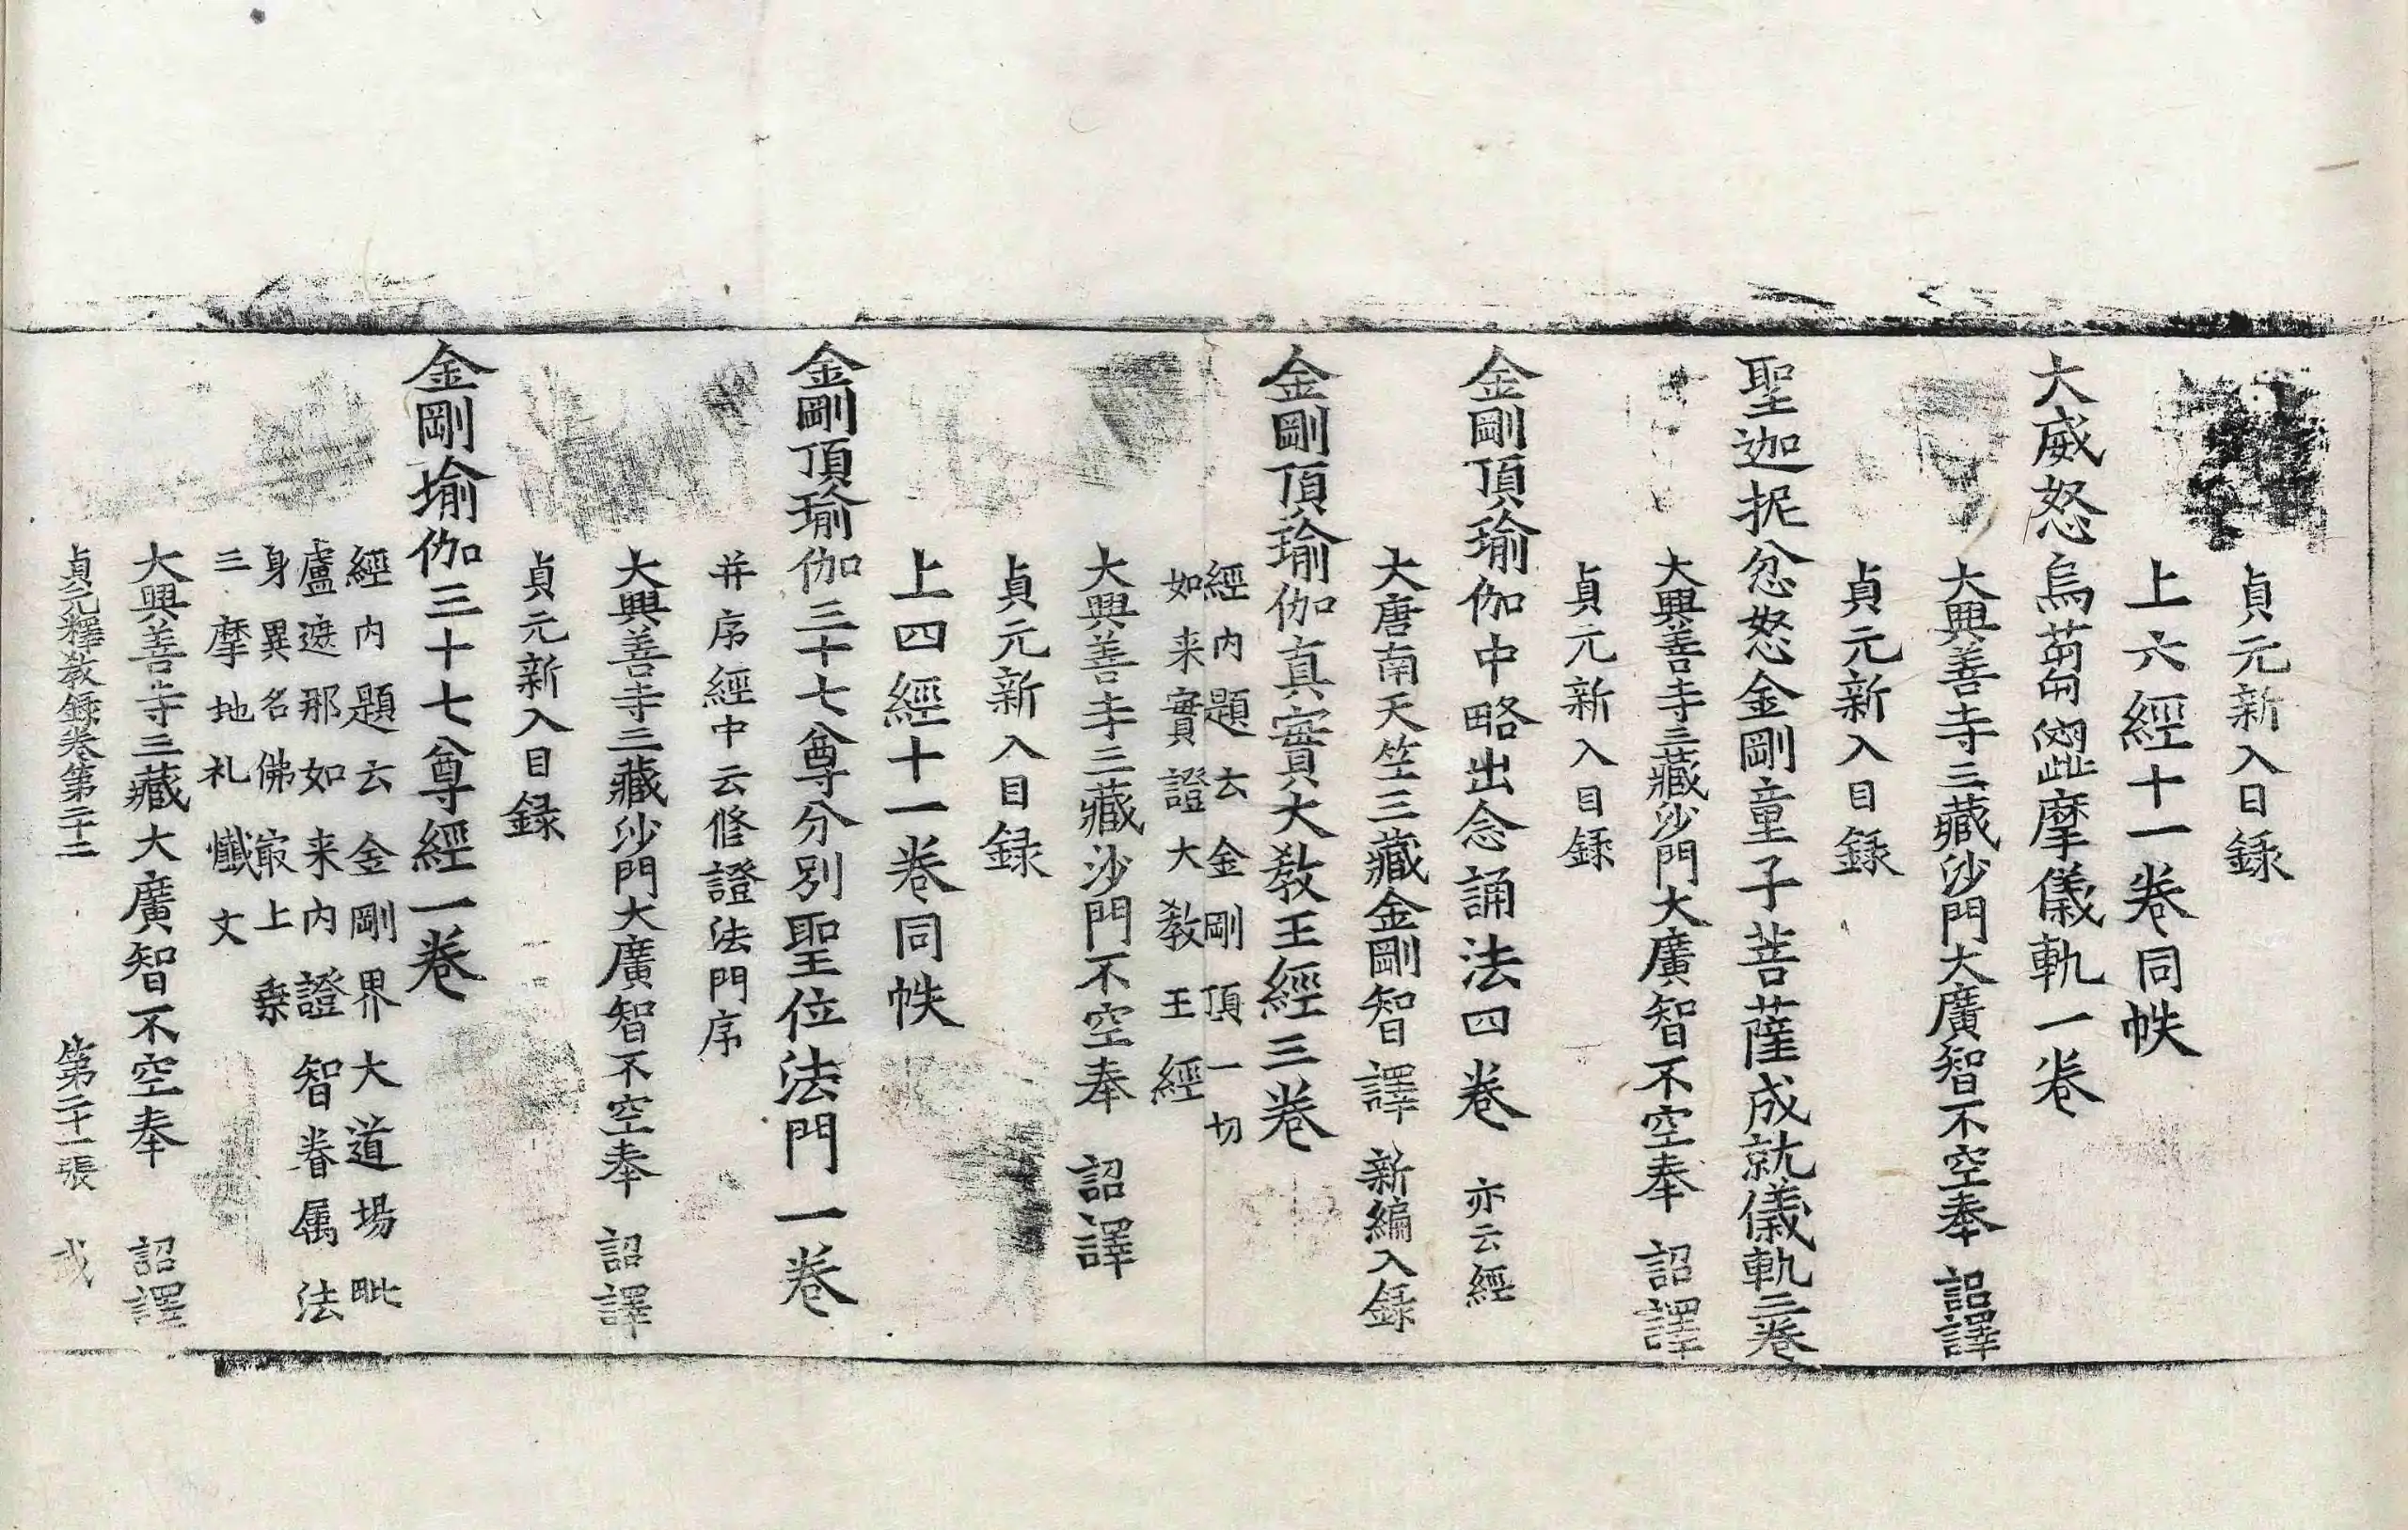 貞元新入目録
上六經十一卷同帙
大威怒烏芻澀摩儀軌一卷
大興善寺三藏沙門大廣智不空奉 詔譯
貞元新入目録
聖迦抳忿怒金剛童子菩薩成就儀軌三卷
大興善寺三藏沙門大廣智不空奉 詔譯
貞元新入目録
金剛頂瑜伽中略出念誦法四卷 亦云經
大唐南天竺三藏金剛智譯 新編入録
金剛頂瑜伽真實大教王經三卷
經内題云金剛頂一切
如来實證大教王經
大興善寺三藏沙門不空奉 詔譯
貞元新入目録
上四經十一卷同帙
金剛頂瑜伽三十七尊分別聖位法門一卷
并序經中云修證法門序
大興善寺三藏沙門大廣智不空奉 詔譯
貞元新入目録
金剛瑜伽三十七尊經一卷
經内題云金剛界大道場毗
盧遮那如来内證智眷属法
身異名佛冣上乗
三摩地礼懺文
大興善寺三藏大廣智不空奉 詔譯
貞元釋教録卷第二十二 第二十一張